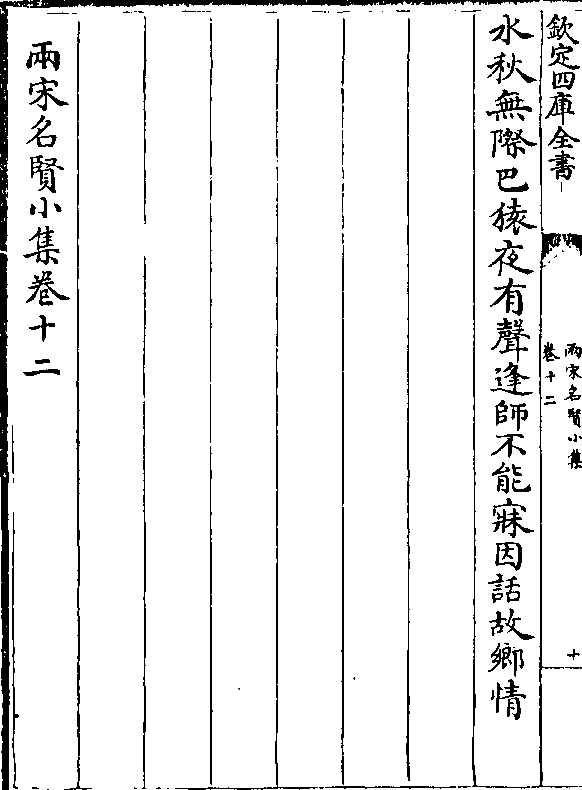 欽定四庫全書
兩宋名賢小集
卷十二
十
水秋無際巴猿夜有聲逢師不能寐因話故鄉情
兩宋名賢小集卷十二